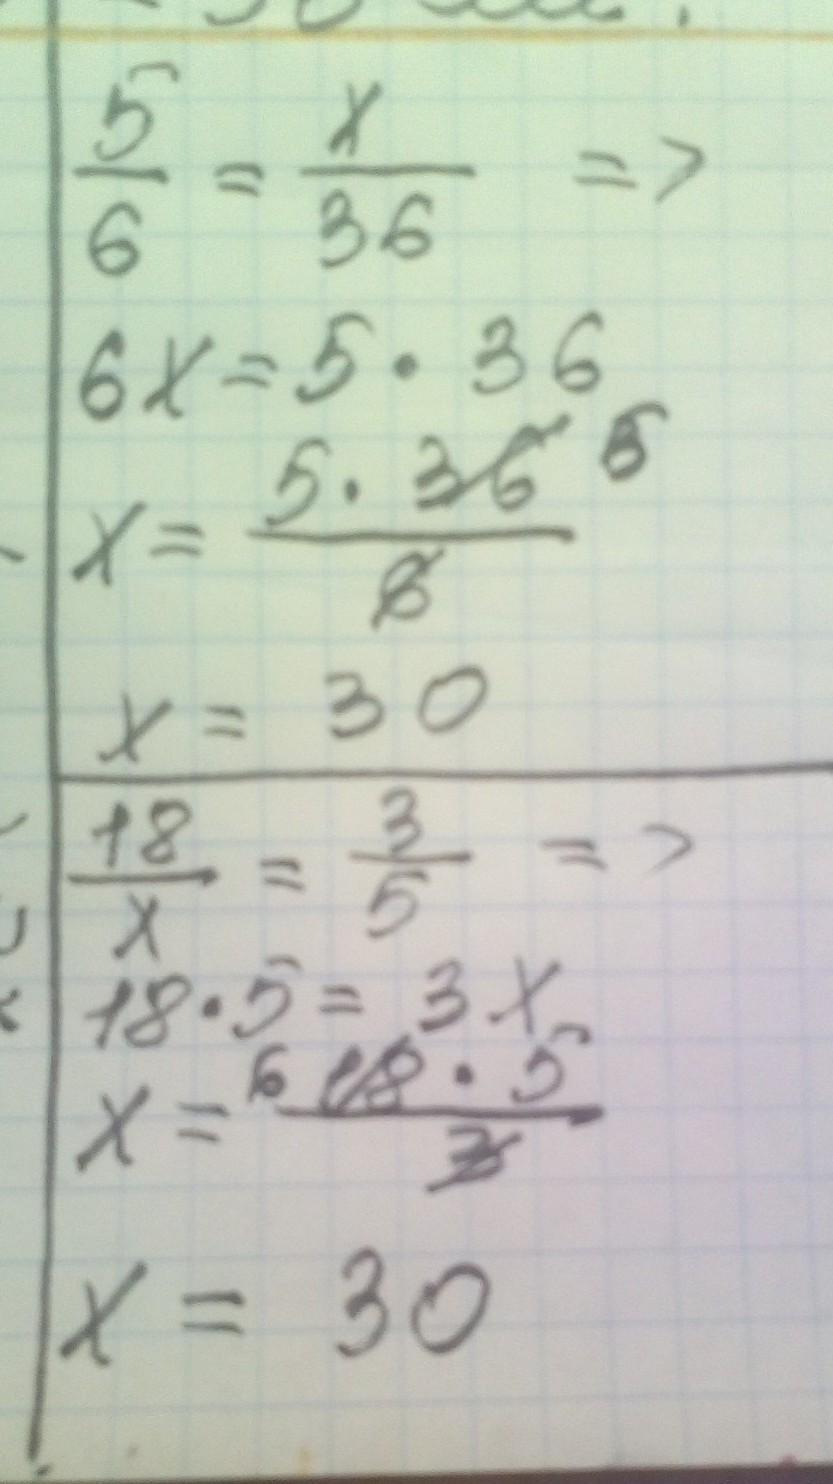 5/6 = x/36 =>
6x = 5 · 36
x = 5 · 36 5 / 6
x = 30
18/x = 3/5 =>
18 · 5 = 3x
x = 6 18 · 5 / 3
x = 30